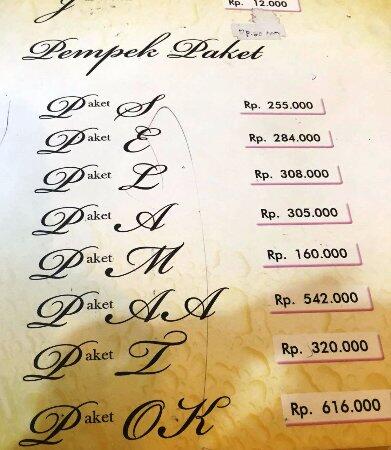 Rp. 12.000
Pempek Paket
Paket S Rp. 255.000
Paket E Rp. 284.000
Paket L Rp. 308.000
Paket A Rp. 305.000
Paket M Rp. 160.000
Paket AA Rp. 542.000
Paket T Rp. 320.000
Paket OK Rp. 616.000